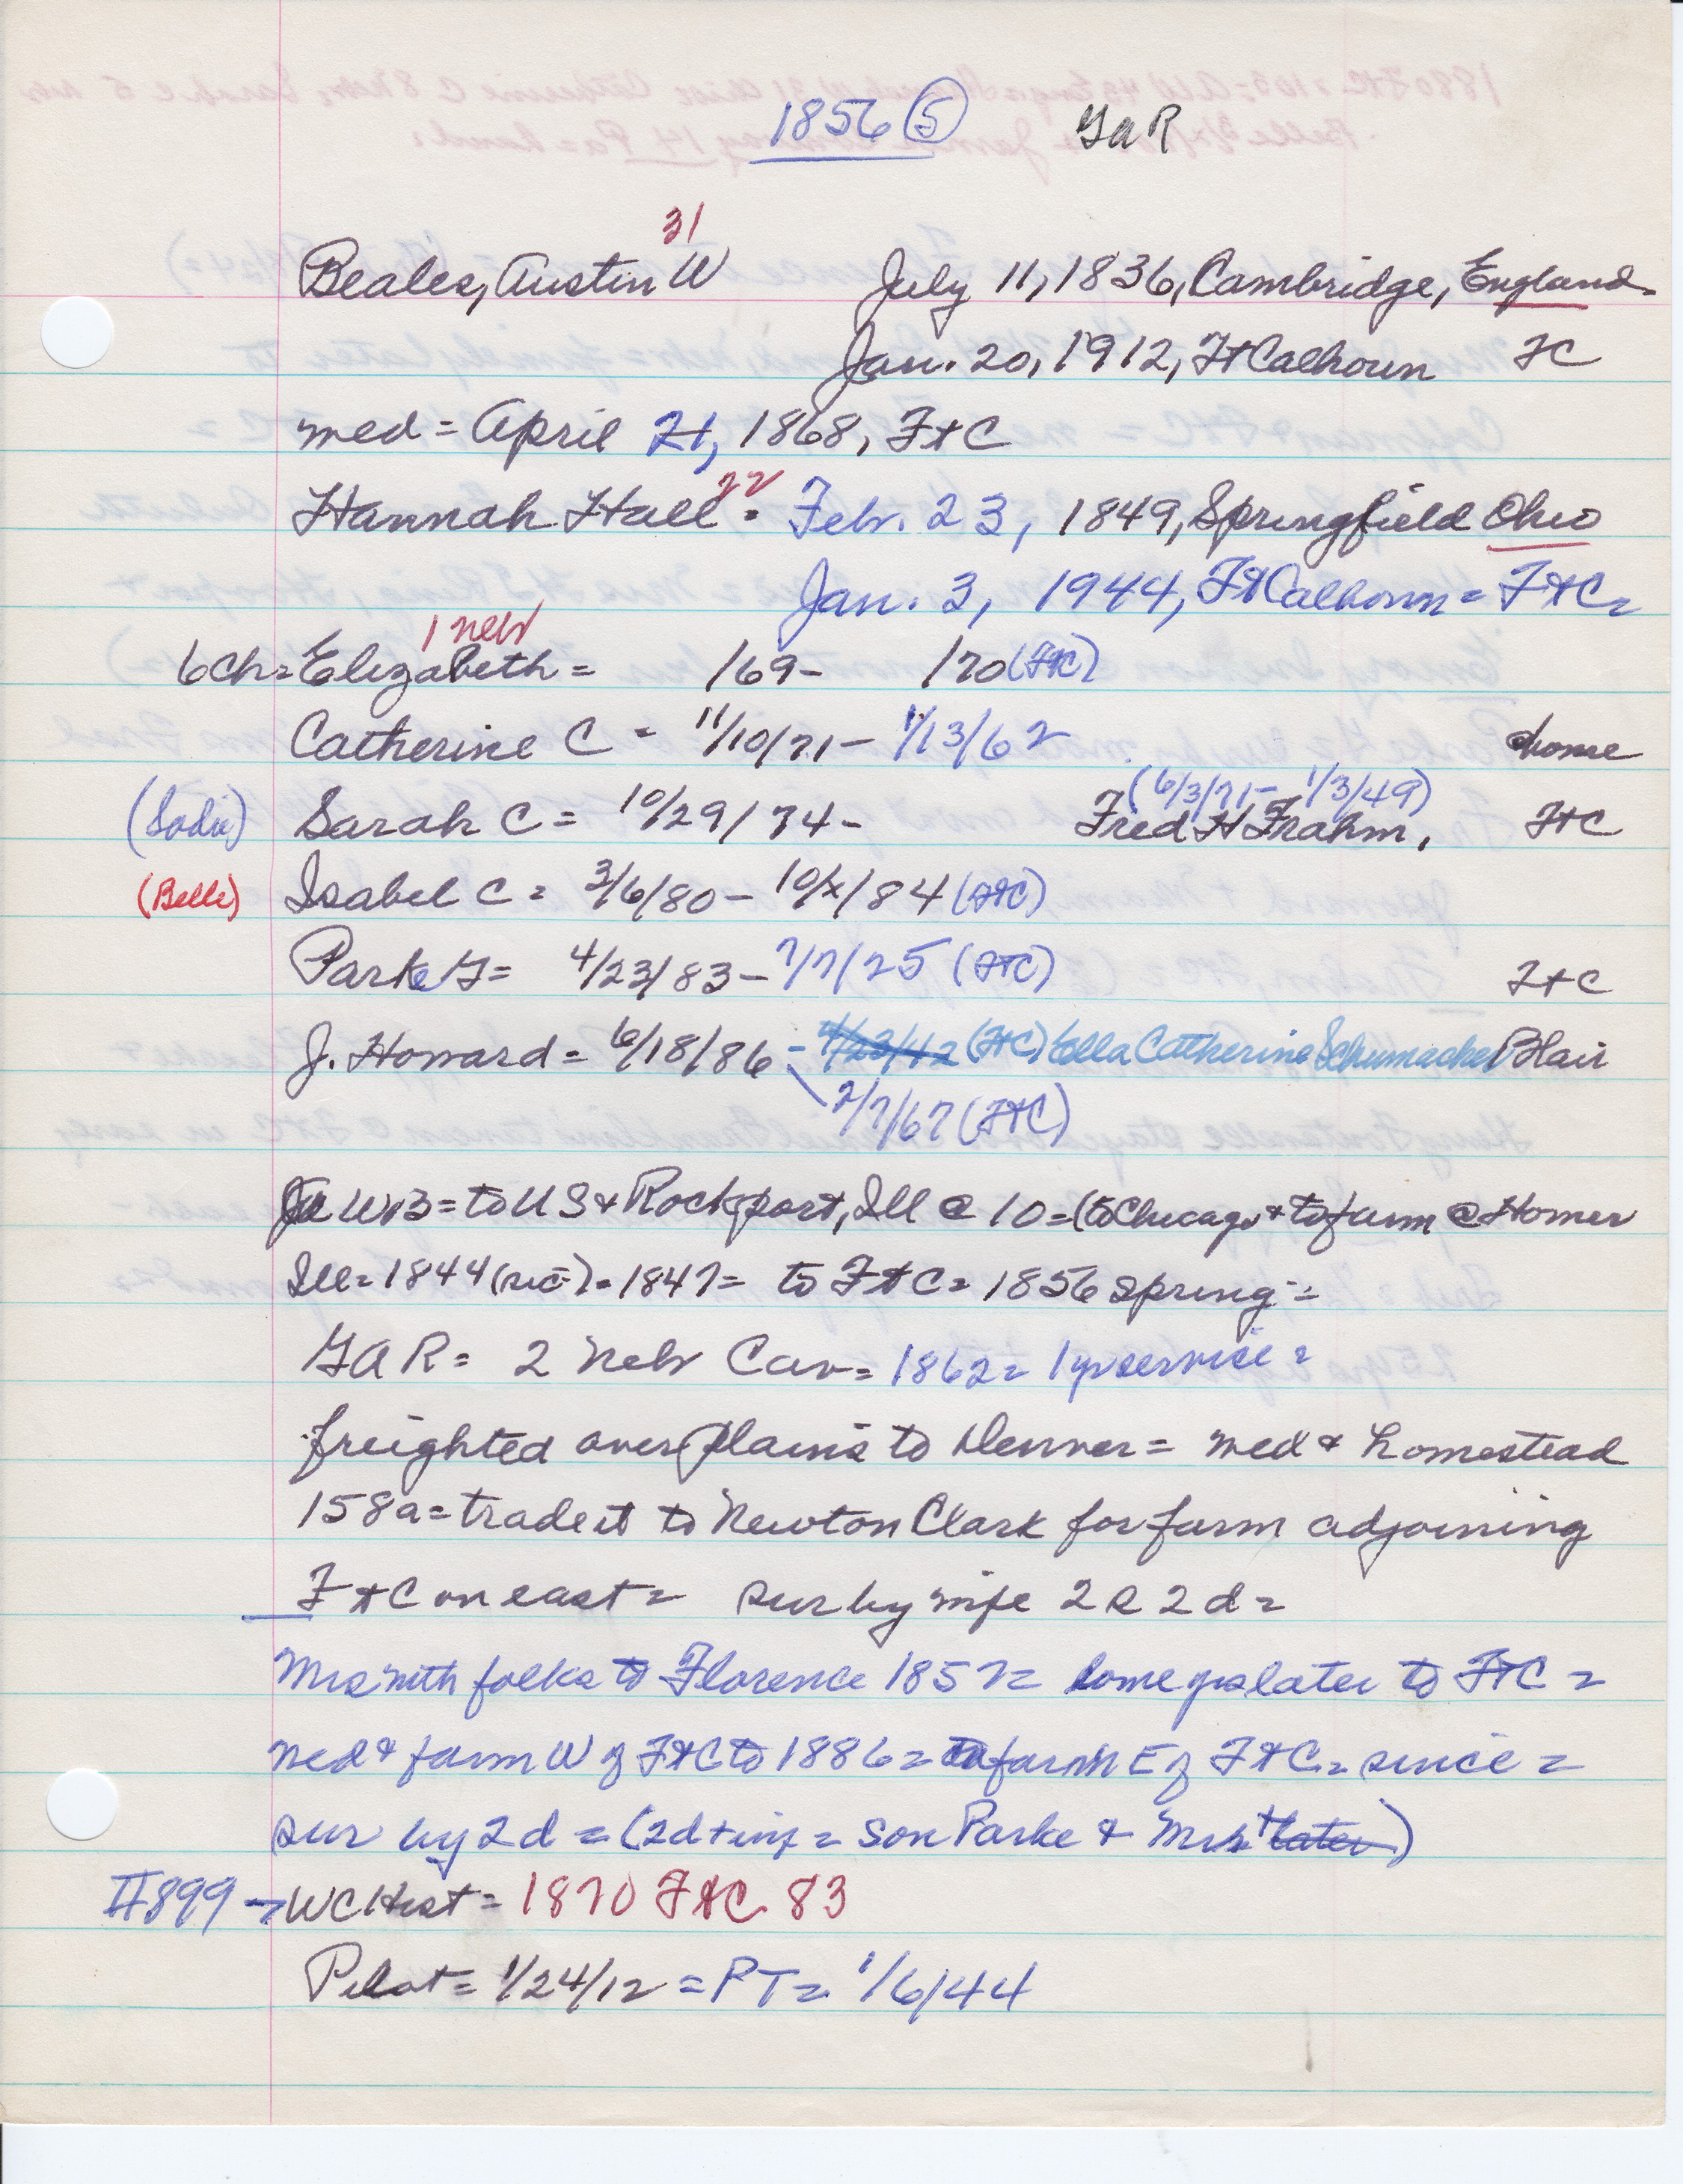 1856 (5) GAR
31
Beales, Austin W July 11, 1836, Cambridge, England-
Jan. 20, 1912, FtCalhoun FC
med = April 21, 1868, FtC
22
Hannah Hall = Feb. 23, 1849, Springfield Ohio
Jan. 3, 1944, FtCalhoun = FtC=
1 neb
6ch = Elizabeth = /69- /70 (FtC)
Catherine C = 11/10/71 - 1/13/62 home
(6/3/71 - 1/3/49)
(Sadie) Sarah C = 10/29/74 - Fred H Frahm, FtC
(Belle) Isabel C = 3/6/80 - 10/x/84 (FtC)
Parke G = 4/23/83 - 7/7/25 (FtC) FtC
J. Howard = 6/18/86 - 4/23/42 (FtC) Ella Catherine Schumacher Blair
2/7/67 (FtC)
W B = to US & Rockport, Ill @ 10 = (to Chicago & to farm @ Homer
Ill = 1844 (sic) = 1847 = to FtC = 1856 spring =
GAR = 2 Neb Cav = 1862 = 1 yr service =
freighted over plains to Denver = med & homestead
158a = trade it to Newton Clark for farm adjoining
FtC on east = sur by wife 2 s 2 d =
Mrs with folks to Florence 1857 = some yrs later to FtC =
med & farm W of FtC to 1886 = to farm E of FtC = since =
sur by 2 d = (2d + inf = son Parke & Mr later)
II#899 → WC Hist = 1870 FtC 83
Pilot = 1/24/12 = PT = 1/6/44